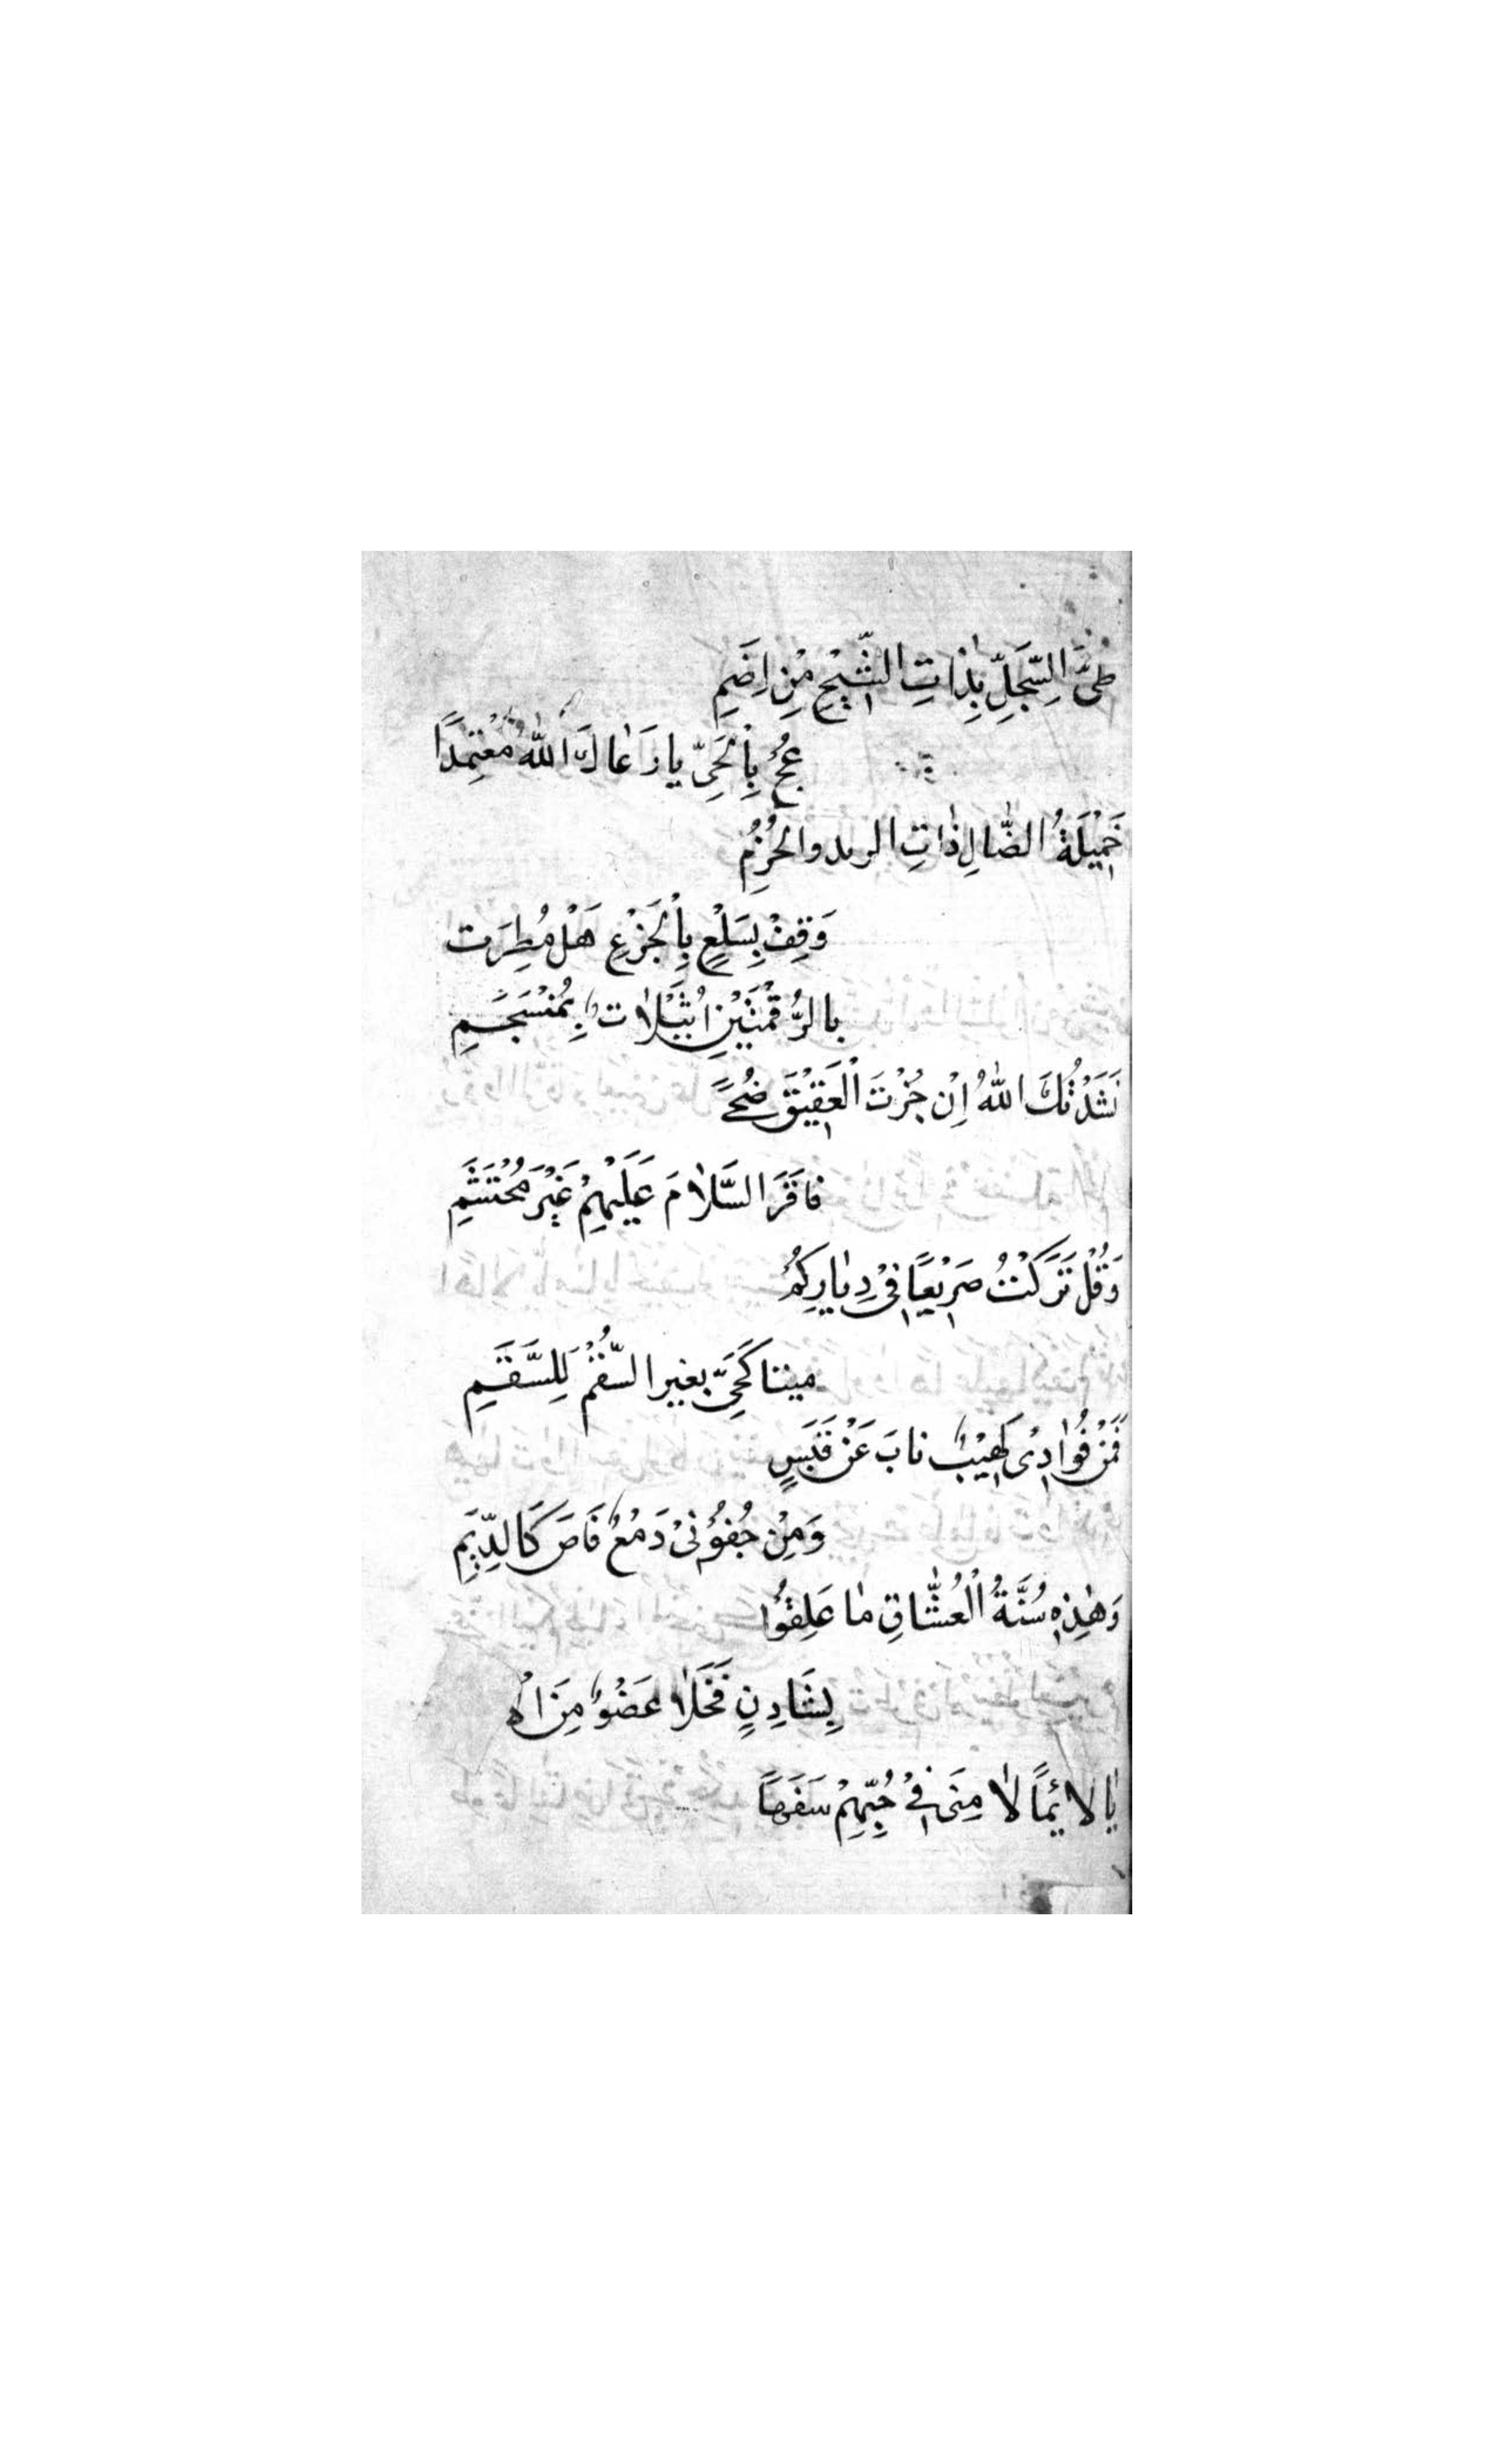 طَىَّ السِّجَلِّ بِذَاتِ الشِّيْحِ مِنْ اِضَمِ
عُجْ بِالْحَىِّ يا رَعَاكَ اللّٰهُ مُعْتَمِدًا
خَمِيْلَةُ الضَّالِ ذَاتِ الرند والْخُزُمِ
وَقِفْ بِسَلْعٍ بِالْجَزْعِ هَلْ مُطِرَت
بِالرُّقْمَتَيْنِ اُثَيْلَاتٌ بِمُنْسَجَمِ
نَشَدْتُكَ اللّٰهَ اِنْ جُزْتَ الْعَقِيْقَ ضُحًى
فاقَرَ السَّلَامَ عَلَيْهِمْ غَيْرَ مُحْتَشَمِ
وَقُلْ تَرَكْتُ صَرِيْعًا فِىْ دِيَارِكُمُ
ميتا كَحَىِّ بغير السُّقْمَ لِلسَّقَمِ
فَمَنْ فُوَادِىْ لَهِيْبٌ نابَ عَنْ قَبَسٍ
وَمِنْ جُفُوْنِىْ دَمْعٌ فَاضَ كَالدِّيَمِ
وَهٰذِهِ سُنَّةُ الْعُشَّاقِ مَا عَلِقُوْا
بِشَادِنٍ فَخَلَا عَضْوٌ مِنَ
يَا لَائِمًا لَامَنِى فِىْ حُبِّهِمْ سَفَهًا